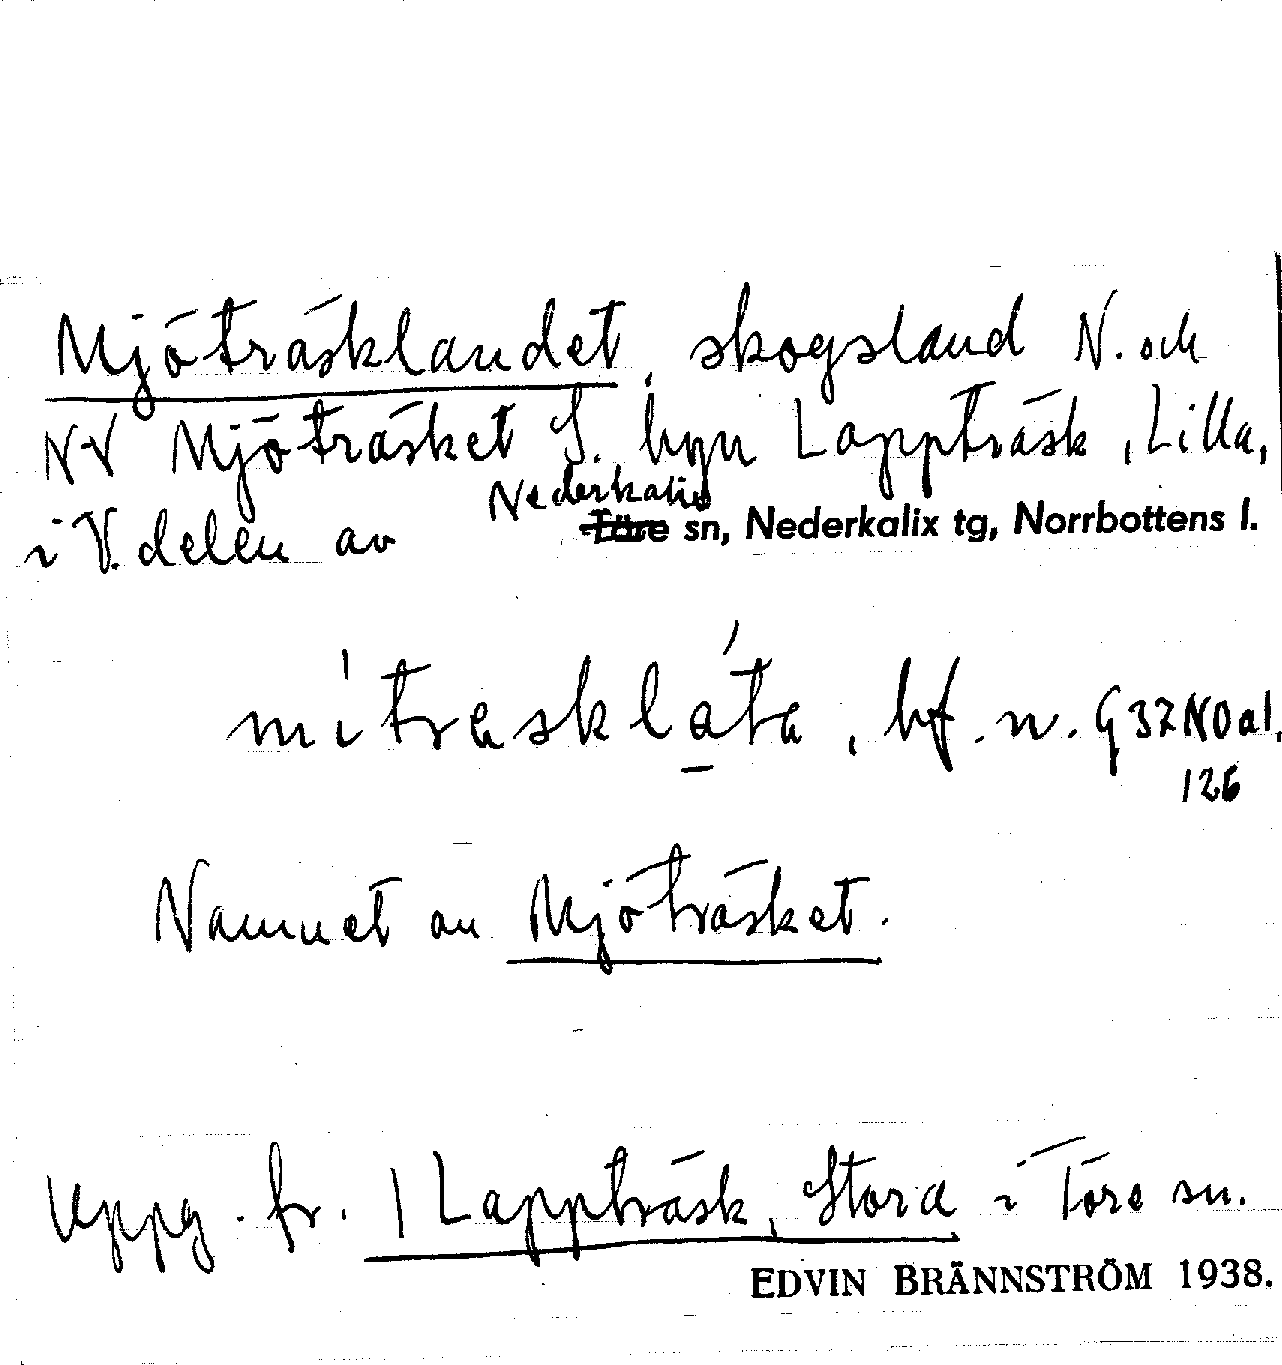 Mjöträsklandet, skogsland N. och
NV Mjöträsket S. byn Lappträsk, Lilla,
i V. delen av Nederkalix Töre sn, Nederkalix tg, Norrbottens l.
bf. n.
126
Namnet av Mjöträsket.
Uppg. fr. 1 Lappträsk, Stora i Töre sn.
EDVIN BRÄNNSTRÖM 1938.